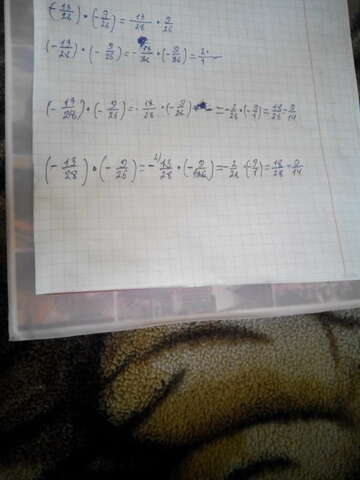 (-13/26) · (-9/26) = -13/28 · 9/26
(-13/28) · (-9/25) = - · (-9/26) =
(-13/28) · (-9/26) = -18/28 · (-9/26) = -2/28 · (-9/1) = 18/28 = 9/14
(-13/28) · (-9/26) = -13/28 · (-9/26) = -2/28 · (-9/1) = 18/28 = 9/14